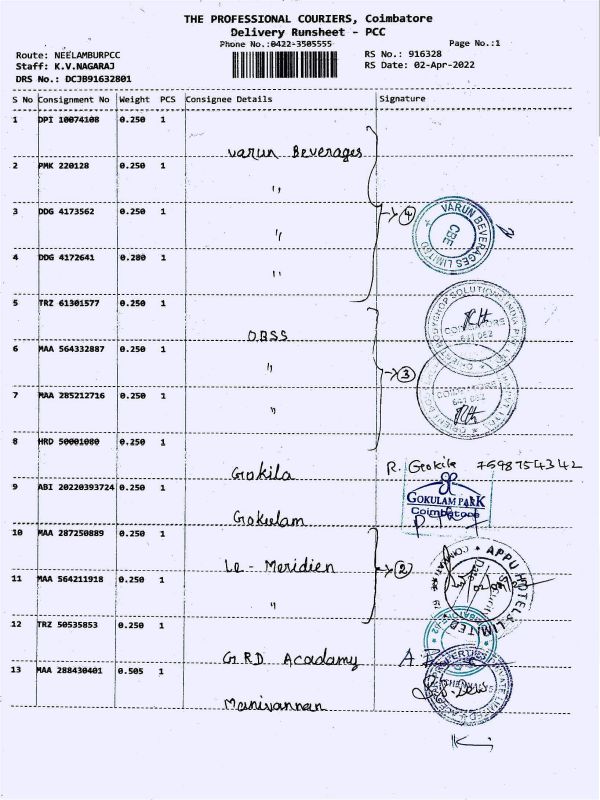 THE PROFESSIONAL COURIERS, Coimbatore
Delivery Runsheet - PCC
Phone No.:0422-3505555
Page No.:1
Route: NEELAMBURPCC
Staff: K.V.NAGARAJ
DRS No.: DCJB91632801
RS No.: 916328
RS Date: 02-Apr-2022
S No Consignment No Weight PCS Consignee Details Signature
1 DPI 10074108 0.250 1
Varun Beverages
2 PMK 220128 0.250 1
"
3 DDG 4173562 0.250 1
" → 4
VARUN BEVERAGES LIMITED
CBE
4 DDG 4172641 0.280 1
"
5 TRZ 61301577 0.250 1
OBSS
COIMBATORE
641 062
6 MAA 564332887 0.250 1
" → 3
7 MAA 285212716 0.250 1
"
COIMBATORE
641 062
8 HRD 50001080 0.250 1
Gokila R. Gokila 7598754342
9 ABI 20220393724 0.250 1
Gokulam
GOKULAM PARK
Coimbatore
10 MAA 287250889 0.250 1
Le-Meridien → 2
APPU HOTELS LIMITED
Security
Date
11 MAA 564211918 0.250 1
"
12 TRZ 50535853 0.250 1
G.R.D Acadamy
13 MAA 288430401 0.505 1
Manivannan